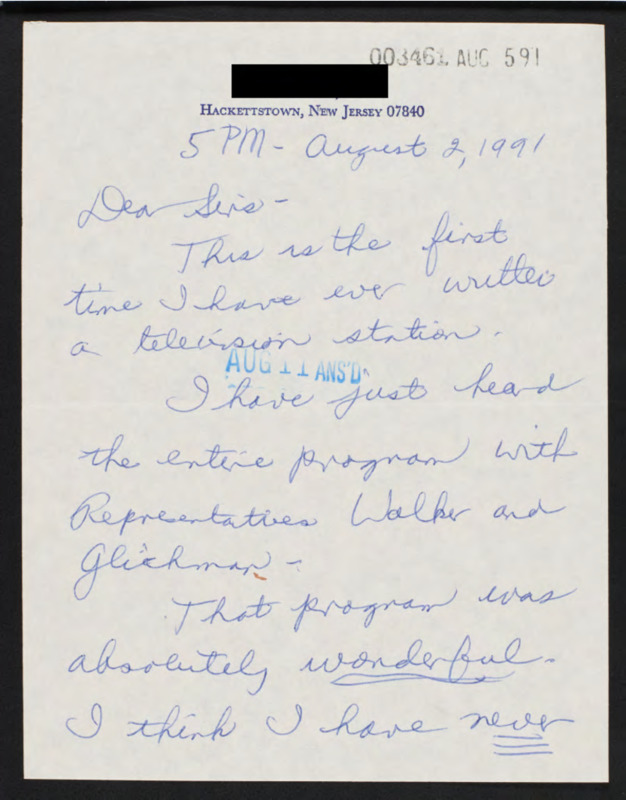 003461 AUG 591
HACKETTSTOWN, NEW JERSEY 07840
5 PM - August 2, 1991
Dear Sirs -
This is the first
time I have ever written
a television station.
AUG 11 ANS'D
I have just heard
the entire program with
Representatives Walker and
Glickman -
That program was
absolutely wonderful.
I think I have never